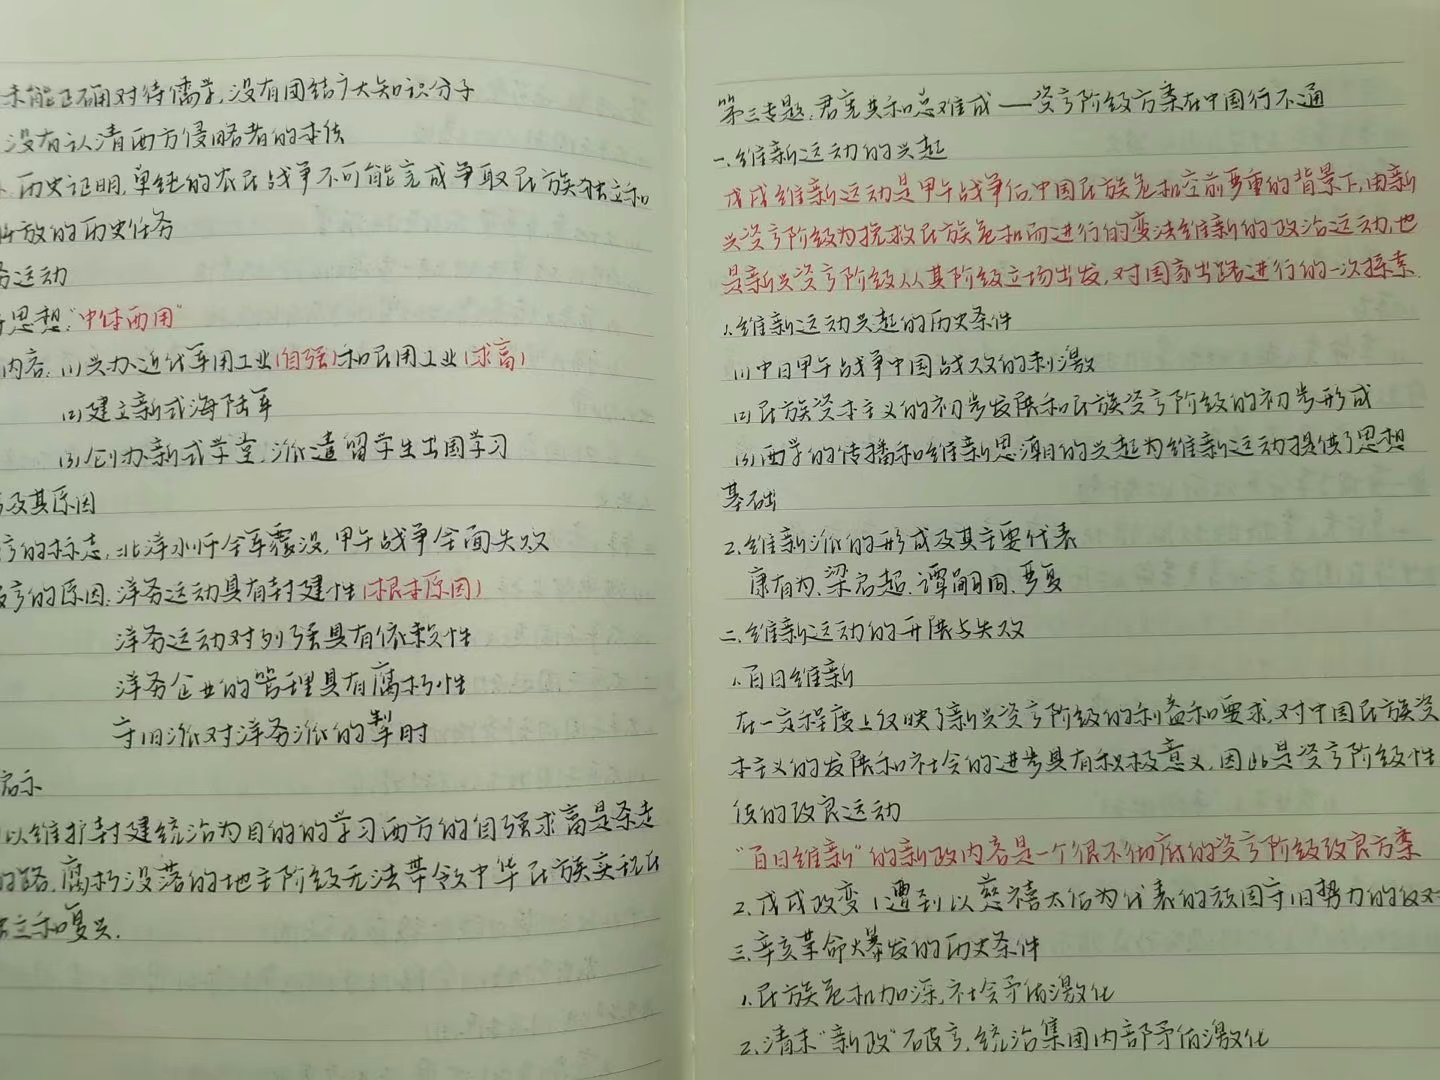 未能正确对待儒学,没有团结广大知识分子
没有认清西方侵略者的本质
历史证明,单纯的农民战争不可能完成争取民族独立和
解放的历史任务
务运动
思想:"中体西用"
内容:(1)兴办近代军用工业(自强)和民用工业(求富)
(2)建立新式海陆军
(3)创办新式学堂,派遣留学生出国学习
及其原因
的标志:北洋水师全军覆没,甲午战争全面失败
的原因:洋务运动具有封建性(根本原因)
洋务运动对列强具有依赖性
洋务企业的管理具有腐朽性
守旧派对洋务派的掣肘
启示
以维护封建统治为目的的学习西方的自强求富是条走
的路,腐朽没落的地主阶级无法带领中华民族实现民
立和复兴.
第三专题:君宪共和总难成——资产阶级方案在中国行不通
一.维新运动的兴起
戊戌维新运动是甲午战争后,中国民族危机空前严重的背景下,由新
兴资产阶级为挽救民族危机而进行的变法维新的政治运动,也
是新兴资产阶级从其阶级立场出发,对国家出路进行的一次探索.
1.维新运动兴起的历史条件
(1)中日甲午战争中国战败的刺激
(2)民族资本主义的初步发展和民族资产阶级的初步形成
(3)西学的传播和维新思潮的兴起为维新运动提供了思想
基础
2.维新派的形成及其主要代表
康有为.梁启超.谭嗣同.严复
二.维新运动的开展与失败
1.百日维新
在一定程度上反映了新兴资产阶级的利益和要求,对中国民族资
本主义的发展和社会的进步具有积极意义,因此是资产阶级性
质的改良运动
"百日维新"的新政内容是一个很不彻底的资产阶级改良方案
2.戊戌政变(遭到以慈禧太后为代表的顽固守旧势力的反对
三.辛亥革命爆发的历史条件
1.民族危机加深,社会矛盾激化
2.清末"新政"破产,统治集团内部矛盾激化